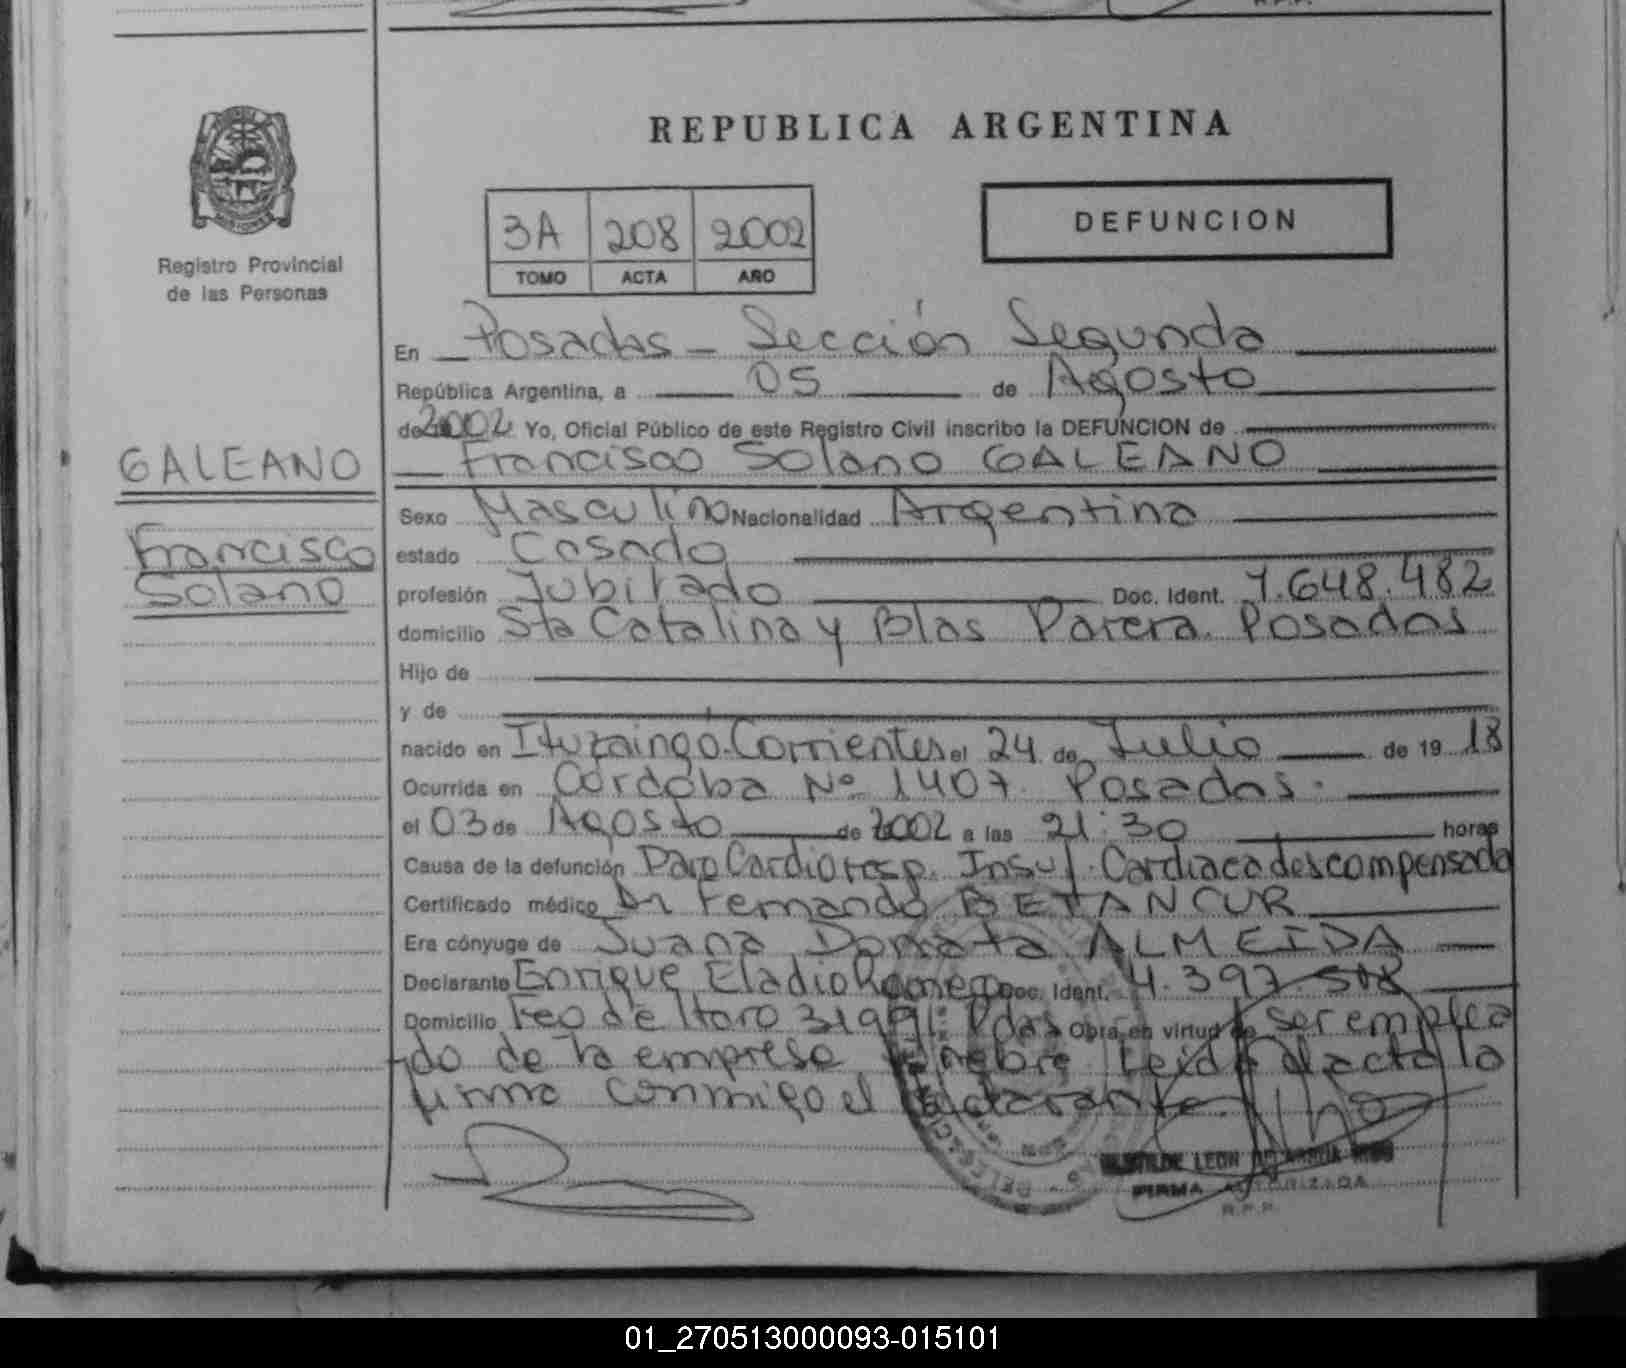 REPUBLICA ARGENTINA
3A 208 2002
TOMO ACTA AÑO
DEFUNCION
Registro Provincial
de las Personas
GALEANO
Francisco
Solano
En Posadas - Sección Segunda
República Argentina, a 05 de Agosto
de 2002 Yo, Oficial Público de este Registro Civil inscribo la DEFUNCION de
Francisco Solano GALEANO
Sexo Masculino Nacionalidad Argentina
estado Casado
profesión Jubilado Doc. Ident. 7.648.482
domicilio Sta Catalina y Blas Parera. Posadas
Hijo de
y de
nacido en Ituzaingó. Corrientes el 24 de Julio de 19 18
Ocurrida en Cordoba Nº 1407. Posadas.
el 03 de Agosto de 2002 a las 21:30 horas
Causa de la defunción Paro Cardioresp. Insuf. Cardiaca descompensada
Certificado médico Dr Fernando BETANCUR
Era cónyuge de Juana Donata ALMEIDA
Declarante Enrique Eladio Romero Doc. Ident. 4.397.508
Domicilio Feo de Haro 3199. Pdas Obra en virtud de ser emplea
do de la empresa funebre Leida el acta la
firma conmigo el declarante.
LEON
FIRMA AUTORIZADA
R.P.P.
01_270513000093-015101